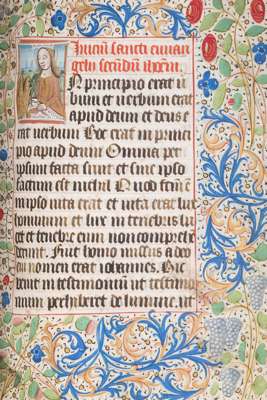 Iniciũ sancti euuan
gelii secũdũ ioh̃em
N principio erat u
bum et uerbum erat
apud deum et deus e
rat uerbum Hoc erat in princi
pio apud deum Omnia per
ipsum facta sunt et sine ipso
factum est nichil Quod fcm̃ ẽ
in ipso uita erat et uita erat lux
hominum et lux in tenebris lu
cet et tenebre eum non comprehe
derunt Fuit homo missus a deo
cui nomen erat iohannes Hic ue
nit in testimonium ut testimo
nium perhiberet de lumine ut